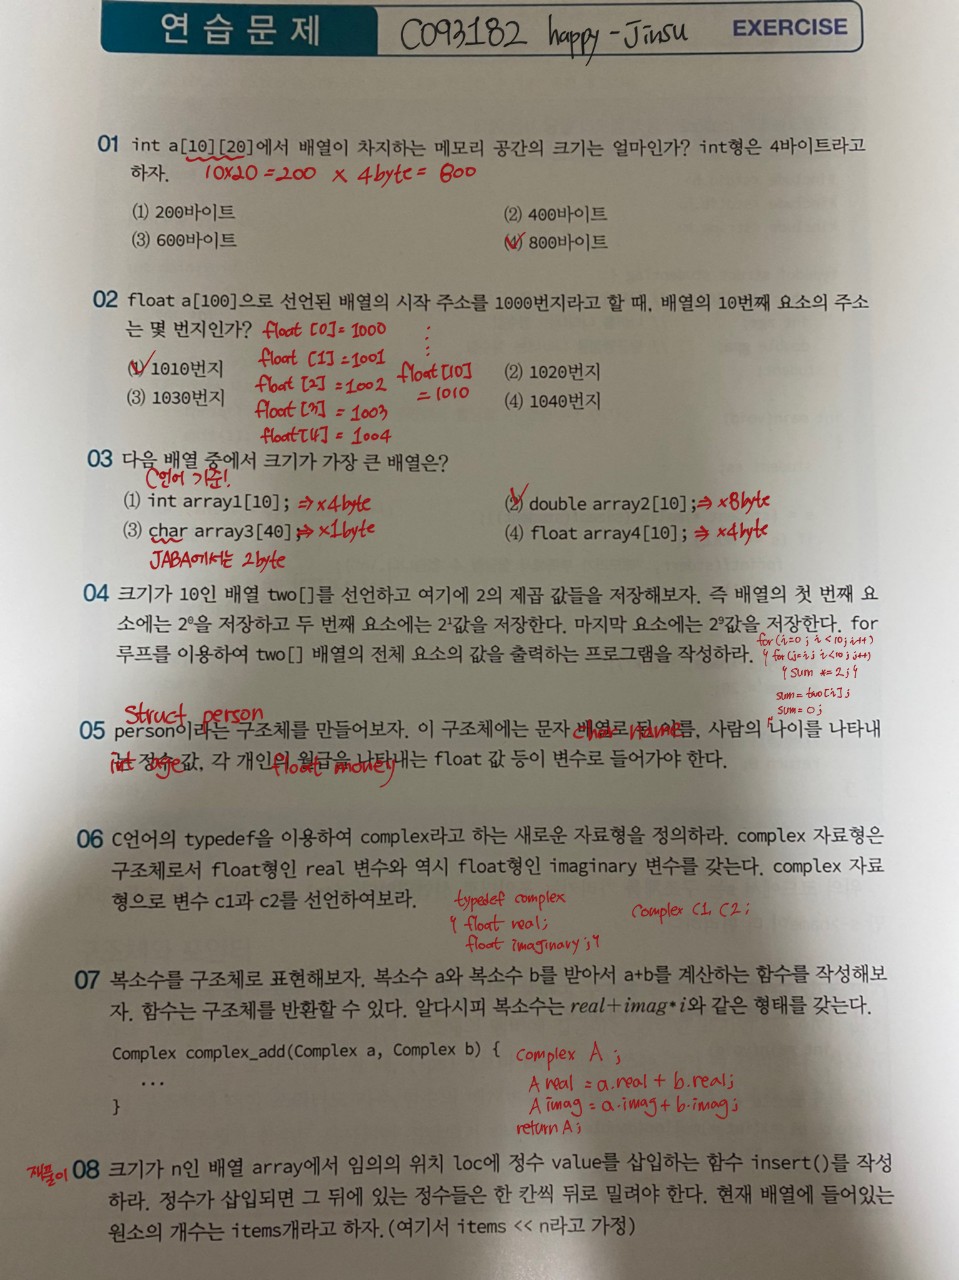 연습문제 C093182 happy-Jinsu EXERCISE
01 int a[10][20]에서 배열이 차지하는 메모리 공간의 크기는 얼마인가? int형은 4바이트라고
하자. 10x20=200 x 4byte= 800
(1) 200바이트 (2) 400바이트
(3) 600바이트 (4) 800바이트
02 float a[100]으로 선언된 배열의 시작 주소를 1000번지라고 할 때, 배열의 10번째 요소의 주소
는 몇 번지인가? float [0]= 1000
(1) 1010번지 float [1] =1001 (2) 1020번지
float [2] =1002 float[10]
(3) 1030번지 float [3] = 1003 = 1010 (4) 1040번지
float[4] = 1004
03 다음 배열 중에서 크기가 가장 큰 배열은?
C언어 기준!
(1) int array1[10]; ⇒ x4byte (2) double array2[10]; ⇒ x8byte
(3) char array3[40]; ⇒ x1byte (4) float array4[10]; ⇒ x4byte
JABA에서는 2byte
04 크기가 10인 배열 two[]를 선언하고 여기에 2의 제곱 값들을 저장해보자. 즉 배열의 첫 번째 요
소에는 2⁰을 저장하고 두 번째 요소에는 2¹값을 저장한다. 마지막 요소에는 2⁹값을 저장한다. for
for(i=0; i<10; i++)
루프를 이용하여 two[] 배열의 전체 요소의 값을 출력하는 프로그램을 작성하라. { for(j=i; i<10; j++)
{ sum *= 2; }
sum= two[i];
sum= 0;
}
struct person
05 person이라는 구조체를 만들어보자. 이 구조체에는 문자 배열로 된 이름, 사람의 나이를 나타내
char name
는 정수 값, 각 개인의 월급을 나타내는 float 값 등이 변수로 들어가야 한다.
int age float money
06 C언어의 typedef을 이용하여 complex라고 하는 새로운 자료형을 정의하라. complex 자료형은
구조체로서 float형인 real 변수와 역시 float형인 imaginary 변수를 갖는다. complex 자료
형으로 변수 c1과 c2를 선언하여보라. typedef complex
{ float real; Complex C1, C2;
float imaginary; }
07 복소수를 구조체로 표현해보자. 복소수 a와 복소수 b를 받아서 a+b를 계산하는 함수를 작성해보
자. 함수는 구조체를 반환할 수 있다. 알다시피 복소수는 real+imag*i와 같은 형태를 갖는다.
Complex complex_add(Complex a, Complex b) { Complex A ;
... A real = a.real + b.real;
} A imag = a.imag + b.imag;
return A;
재풀이 08 크기가 n인 배열 array에서 임의의 위치 loc에 정수 value를 삽입하는 함수 insert()를 작성
하라. 정수가 삽입되면 그 뒤에 있는 정수들은 한 칸씩 뒤로 밀려야 한다. 현재 배열에 들어있는
원소의 개수는 items개라고 하자.(여기서 items << n라고 가정)